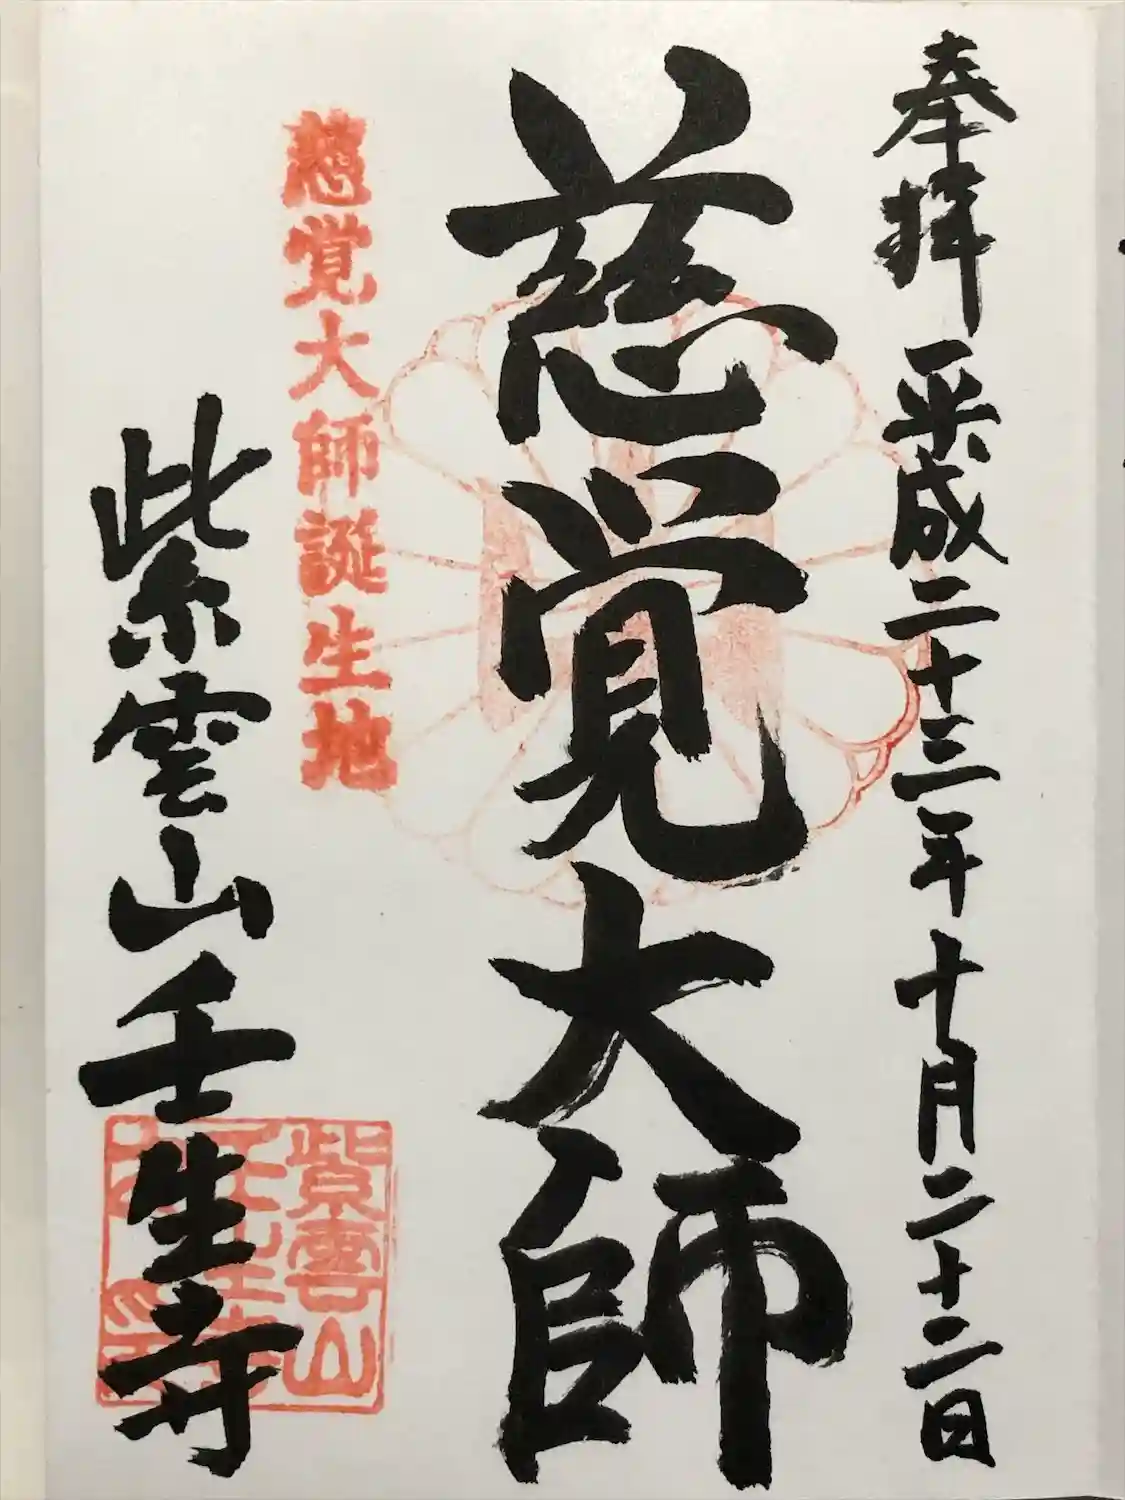 奉拝 平成二十三年十月二十二日
慈覚大師
慈覚大師誕生地
紫雲山壬生寺
紫雲山